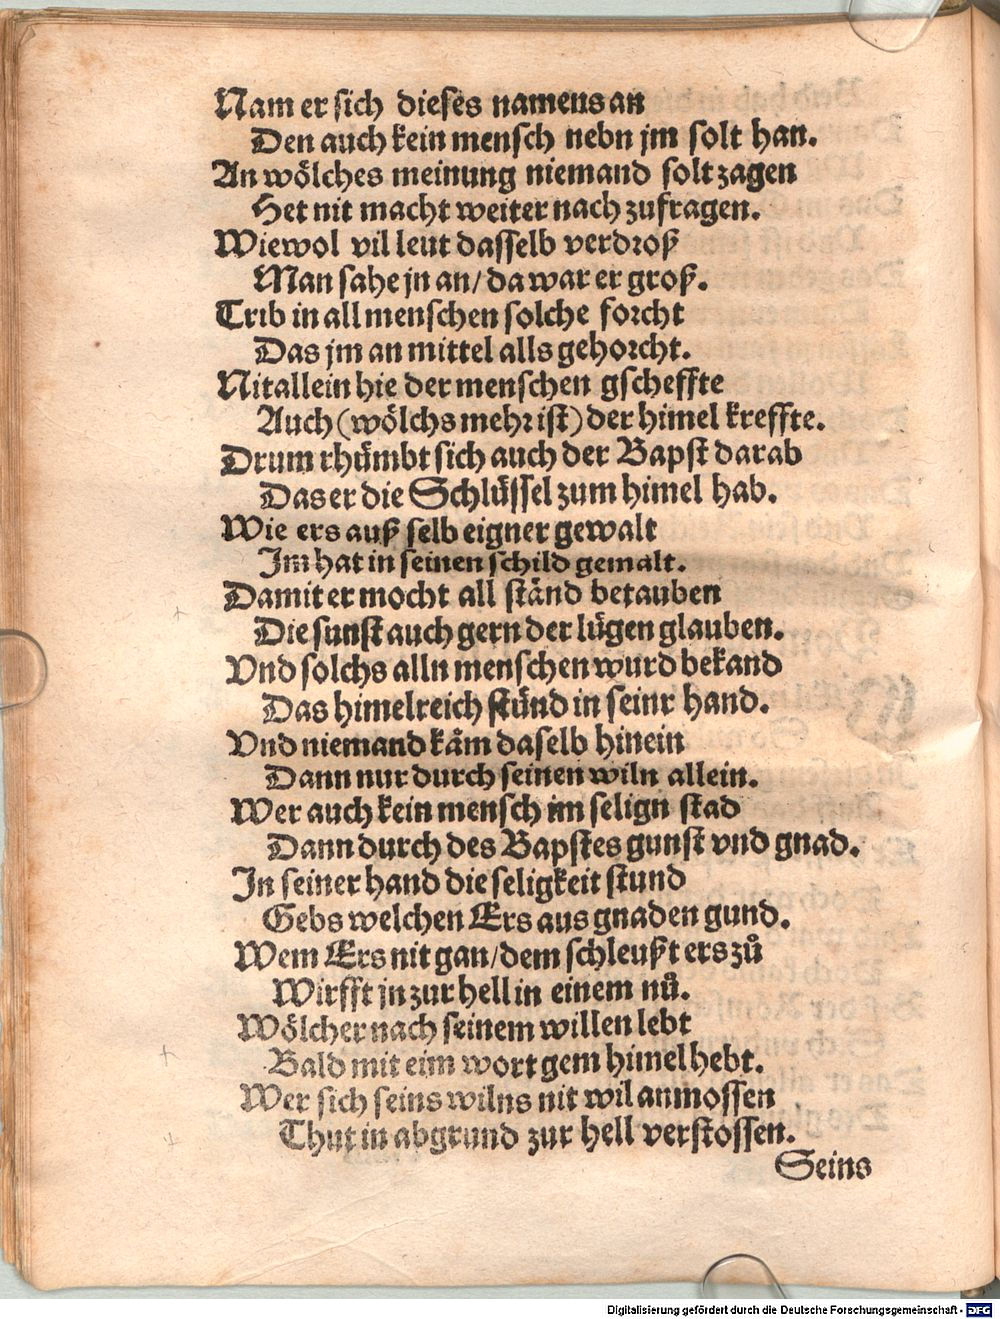 Nam er sich dieses namens an
Den auch kein mensch nebn jm solt han.
An wölches meinung niemand solt zagen
Het nit macht weiter nach zufragen.
Wiewol vil leut dasselb verdroß
Man sahe jn an/ da war er groß.
Trib in all menschen solche forcht
Das jm an mittel alls gehorcht.
Nit allein hie der menschen gscheffte
Auch (wölchs mehr ist) der himel kreffte.
Drum rhümbt sich auch der Bapst darab
Das er die Schlüssel zum himel hab.
Wie ers auß selb eigner gewalt
Im hat in seinen schild gemalt.
Damit er mocht all ständ betauben
Die sunst auch gern der lügen glauben.
Vnd solchs alln menschen wurd bekand
Das himelreich stünd in seinr hand.
Vnd niemand käm daselb hinein
Dann nur durch seinen wiln allein.
Wer auch kein mensch im selign stad
Dann durch des Bapstes gunst vnd gnad.
In seiner hand die seligkeit stund
Gebs welchen Ers aus gnaden gund.
Wem Ers nit gan/ dem schleußt ers zů
Wirfft jn zur hell in einem nů.
Wölcher nach seinem willen lebt
Bald mit eim wort gem himel hebt.
Wer sich seins wilns nit wil anmossen
Thut in abgrund zur hell verstossen.
Seins
Digitalisierung gefördert durch die Deutsche Forschungsgemeinschaft - DFG